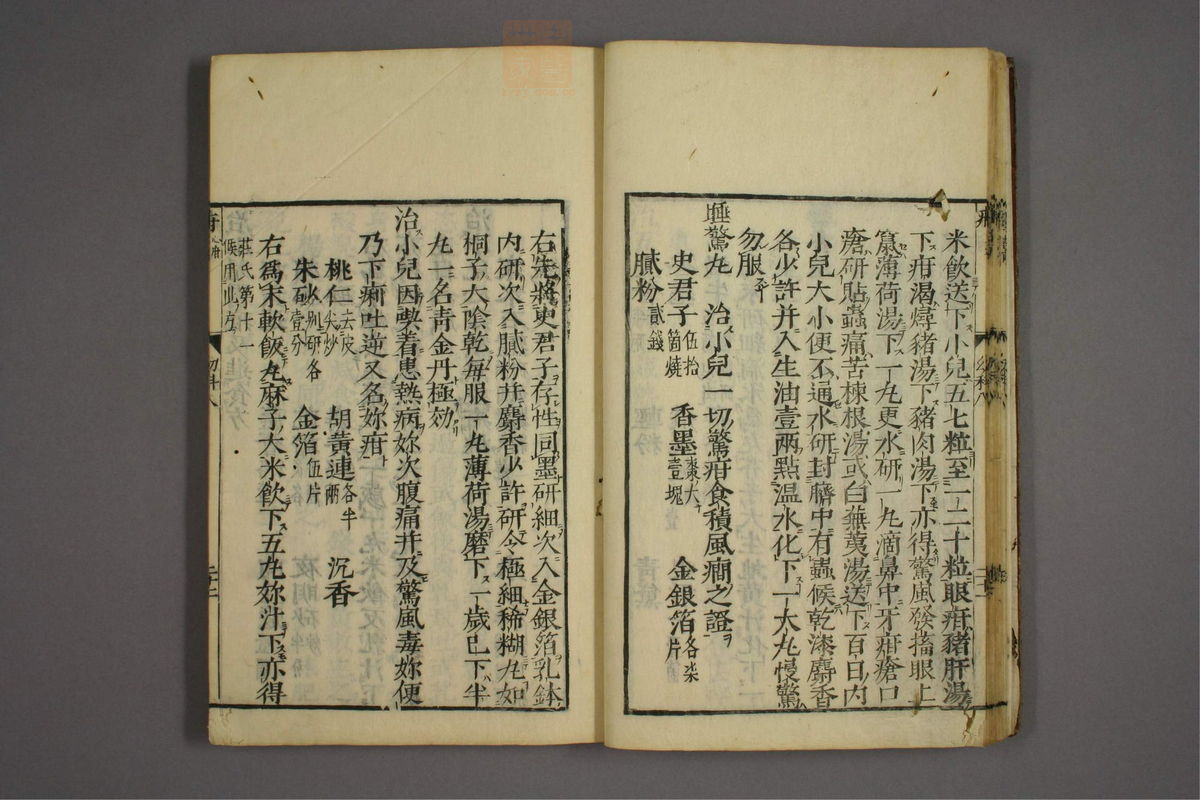 米飲送下小兒五七粒至一二十粒眼疳豬肝湯
下疳渴燖豬湯下豬肉湯下亦得驚風發搐眼上
薄荷湯下一丸更水研一丸滴鼻中牙疳瘡口
瘡研貼蟲痛苦楝根湯或白蕪荑湯送下百日內
小兒大小便不通水研封臍中有蟲候乾漆麝香
各少許并入生油壹兩點溫水化下一大丸慢驚
勿服
睡驚丸 治小兒一切驚疳食積風癇之證
史君子伍拾箇燒 香墨棗大壹塊 金銀箔各柒片
膩粉貳錢
右先將史君子存性同墨研細次入金銀箔乳鉢
內研次入膩粉并麝香少許研令極細稀糊丸如
桐子大陰乾每服一丸薄荷湯磨下一歲已下半
丸一名青金丹極効
治小兒因喫着患熱病妳次腹痛并及驚風毒妳便
乃下痢吐逆又名妳疳
桃仁去皮尖炒 胡黃連各半兩 沉香
朱砂別研各壹分 金箔伍片
右爲末軟飯丸麻子大米飲下五丸妳汁下亦得
莊氏第十一候用此方
幼科八